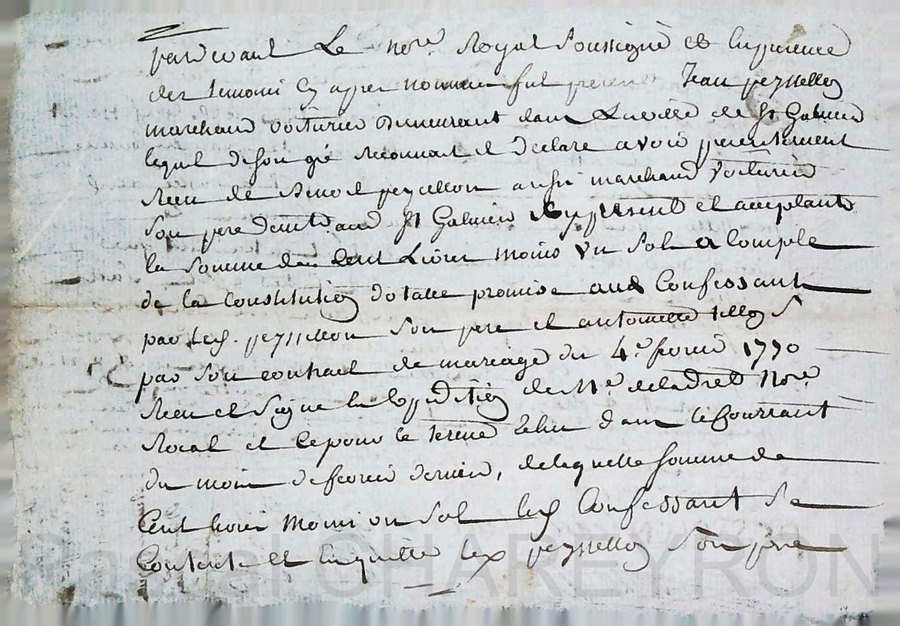 pardevant Le nore Royal Soussigné et En presence
des temoins Cy apres nommes fut present Jean peysselon
marchand voiturier Demeurant dans La ville de St Galmier
lequel de son gré Reconnait et Declare avoir presentement
Receu de peysselon aussi marchand Voiturier
Son pere dud St Galmier Cy present et acceptant
la Somme de Cent Livres moins Un Sol a Compte
de la Constitution dotalle promise aud Confessant
par led. peysselon Son pere et antoinette
par Son contract de mariage du 4e fevrier 1770
Receu et Signé En Expedition de Me Nore
Royal et Ce pour le terme Echu dans le Courrant
du mois de fevrier dernier, de laquelle Somme de
Cent livres Moins un Sol led Confessant Se
Contente et En quitte led peysselon Son pere
Daniel CHAREYRON